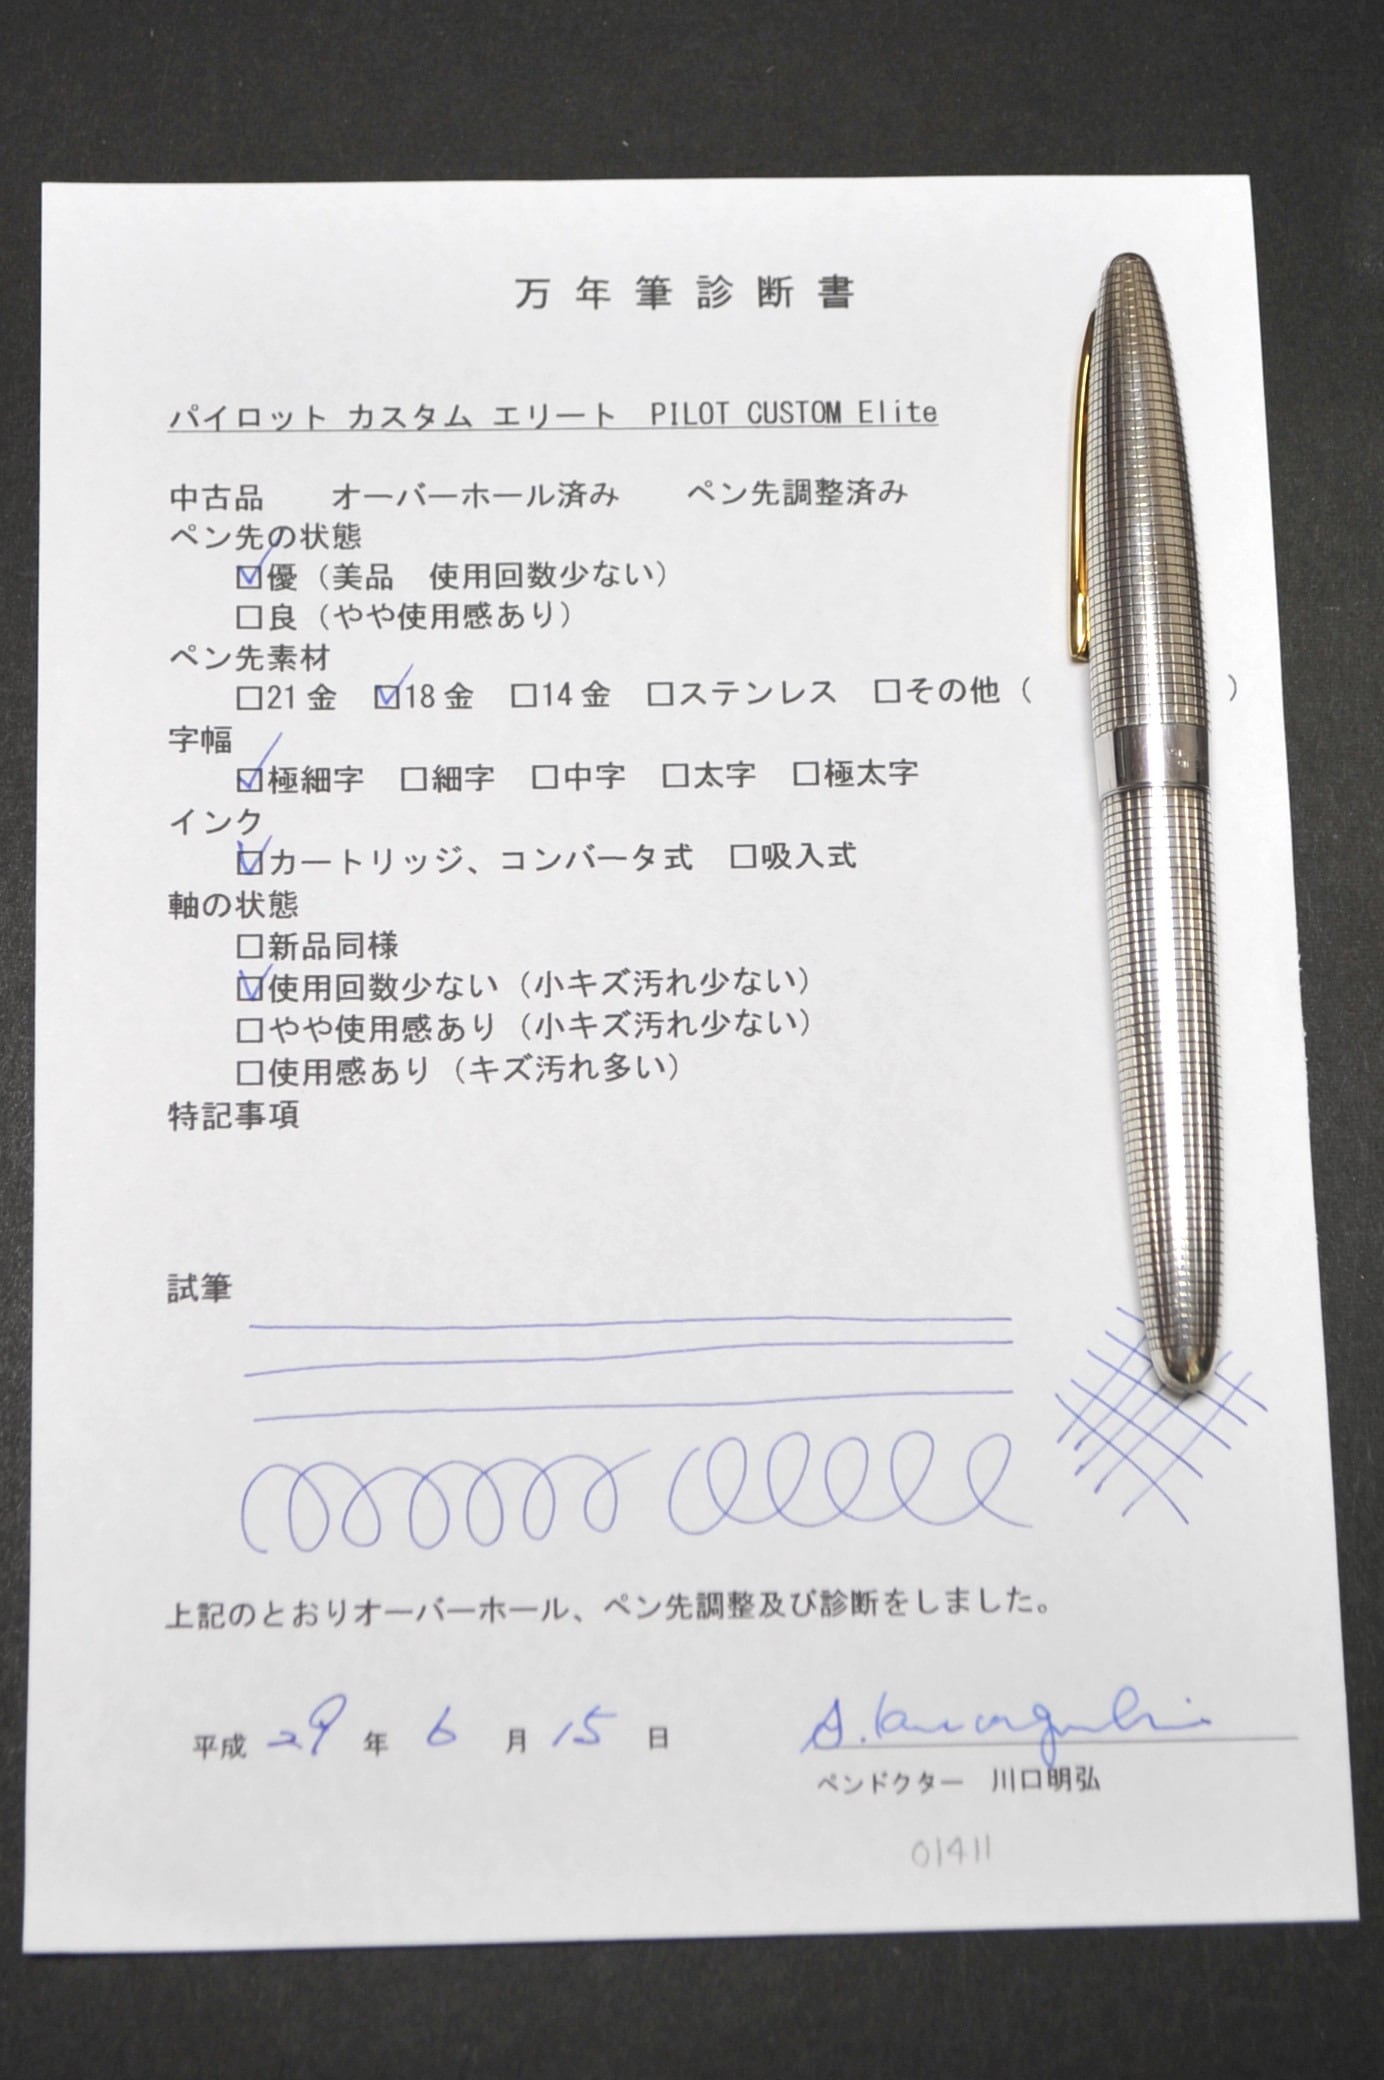 万年筆診断書
パイロット カスタム エリート　PILOT CUSTOM Elite
中古品　　オーバーホール済み　　ペン先調整済み
ペン先の状態
☑優（美品　使用回数少ない）
□良（やや使用感あり）
ペン先素材
□21金　☑18金　□14金　□ステンレス　□その他（　　　　　　）
字幅
☑極細字　□細字　□中字　□太字　□極太字
インク
☑カートリッジ、コンバータ式　□吸入式
軸の状態
□新品同様
☑使用回数少ない（小キズ汚れ少ない）
□やや使用感あり（小キズ汚れ少ない）
□使用感あり（キズ汚れ多い）
特記事項
試筆
上記のとおりオーバーホール、ペン先調整及び診断をしました。
平成 29 年 6 月 15 日
A. Kawaguchi
ペンドクター　川口明弘
01411